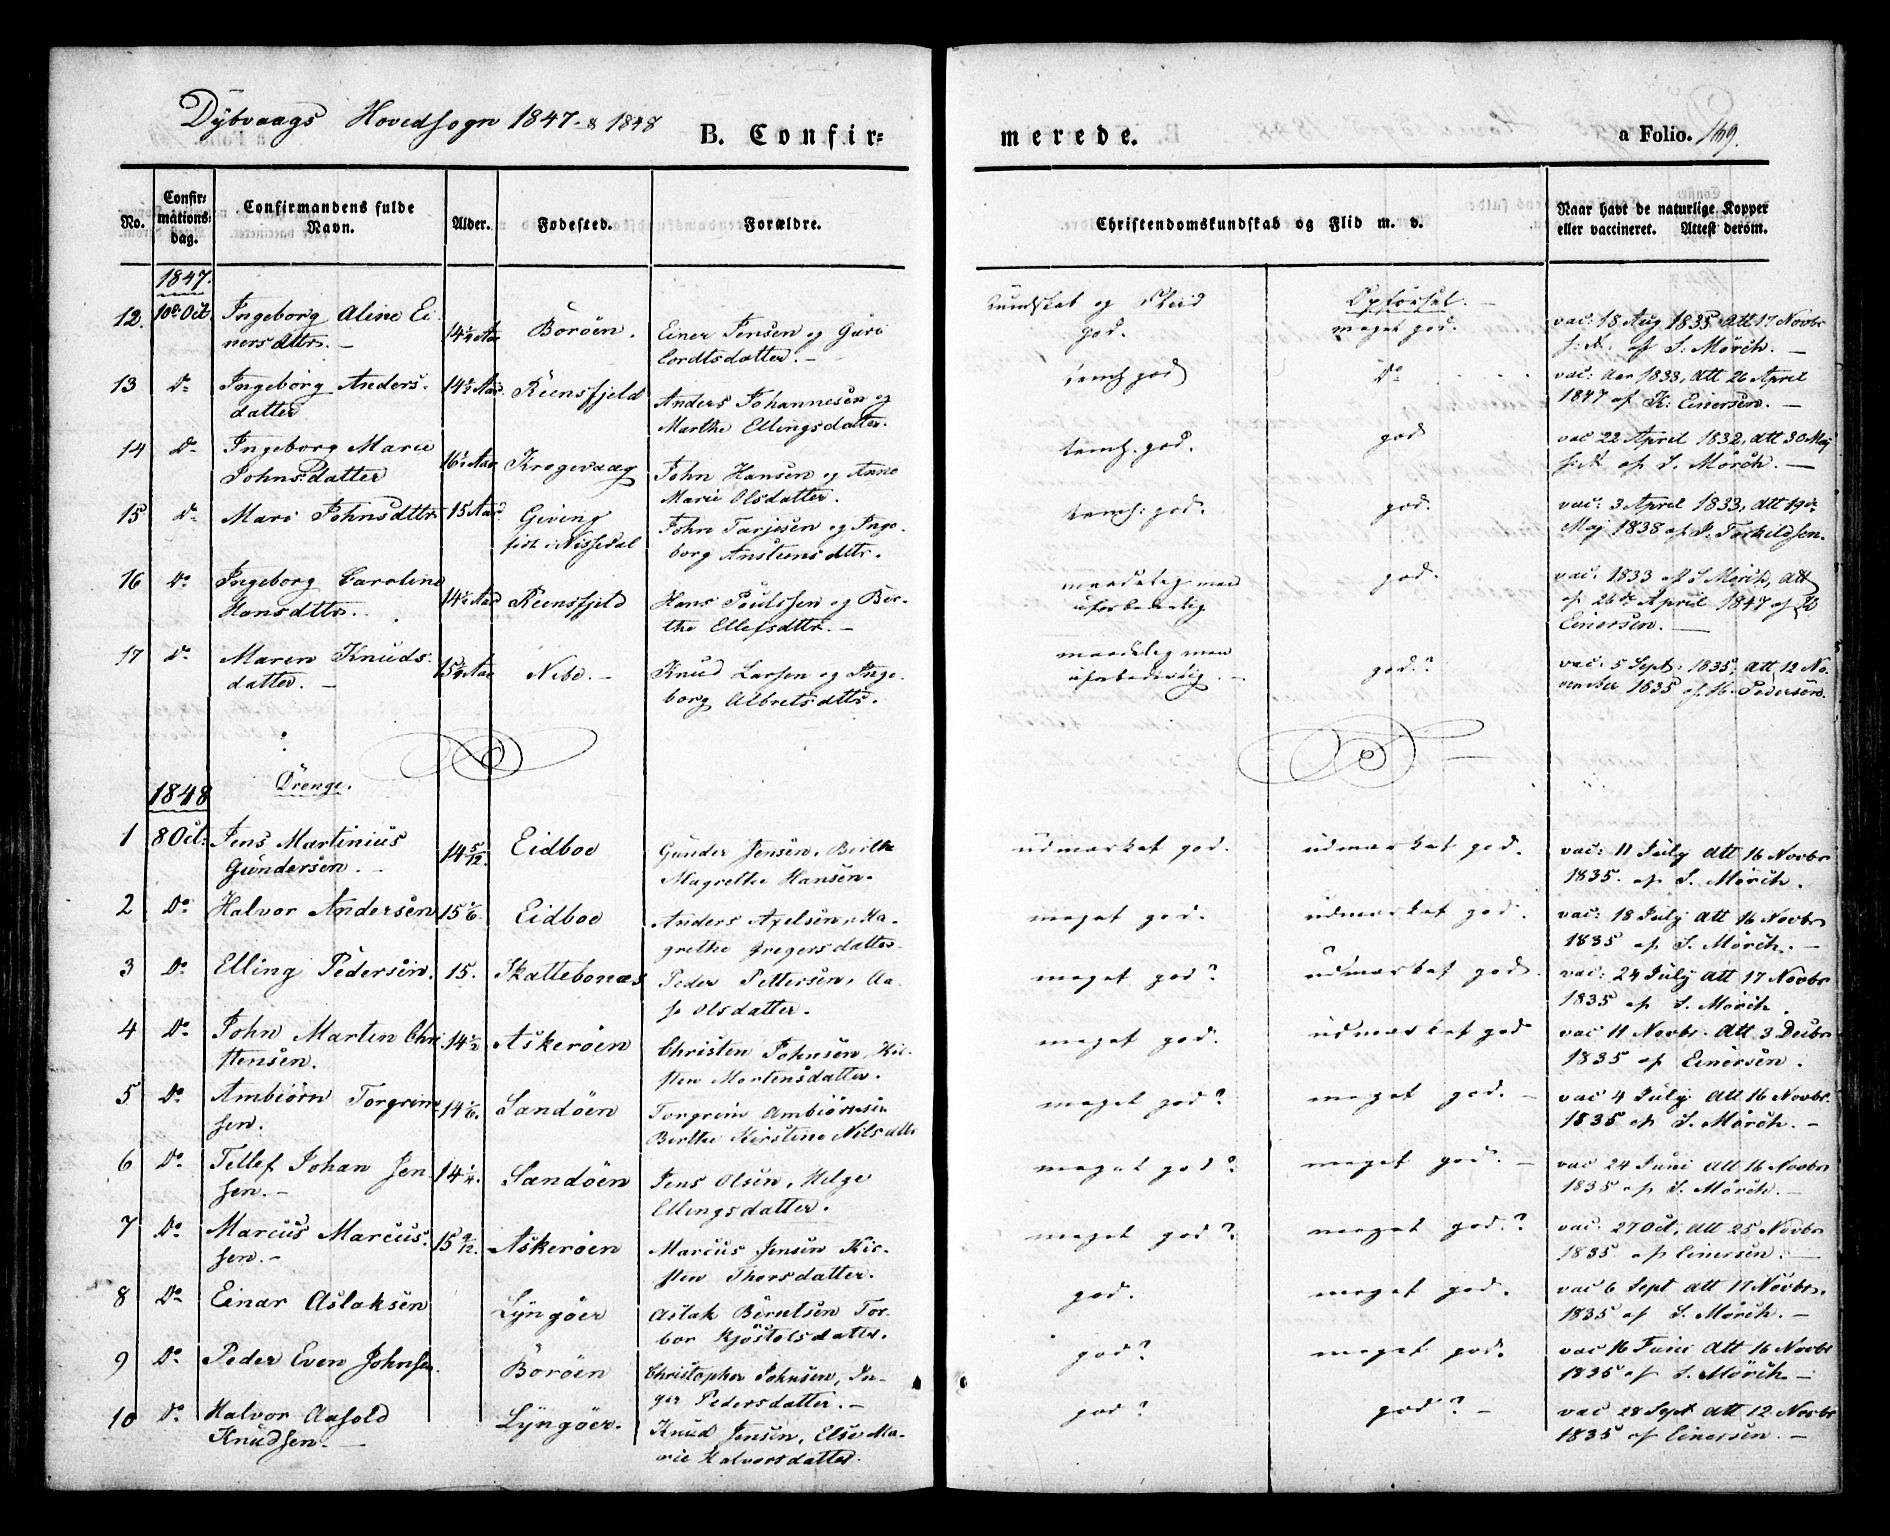 Dybvaags Hovedsogn 1847 & 1848
B. Confir-
merede.
a Folio. 169.
No.
Confir-
mations-
dag.
Confirmandens fulde
Navn.
Alder.
Fødested.
Forældre.
Christendomskundskab og Flid m. v.
Naar havt de naturlige Kopper
eller vaccineret. Attest derom.
1847.
Kundskab og Flid
Opførsel.
12. 10de Oct. Ingeborg Aline Ei-
nersdttr. 14 1/2 Aar Boröen. Einer Jensen og Guro
Cordtsdatter. god. meget god. vac: 18 Aug 1835 att 17 Novbr
s: A. af S. Mörch.
13 Do Ingeborg Anders-
datter 14 1/2 Aar Reensfjeld Anders Johannesen og
Marthe Ellingsdatter. temh god Do vac: Aar 1833, att 26 April
1847 af K: Einersen.
14 Do Ingeborg Marie
Johnsdatter 16 1/2 Aar Krogevaag John Hansen og Anne
Marie Olsdatter. temh. god. god vac 22 April 1832, att 30 Maj
s: A. af S. Mörch.
15 Do Mari Johnsdttr 15 Aar Giving
föd i Nissedal John Tarjesen og Inge-
borg Anstensdttr. temh: god. god. vac: 3 April 1833, att 19de
Maj 1838 af J. Torkildsen.
16 Do Ingeborg Caroline
Hansdttr. 14 1/2 Aar Reensfjeld Hans Poulssen og Ber-
the Ellefsdttr. maadelig men
uforbederlig god. vac: 1833 af S Mörch, att
af 26de April 1847 af K
Einersen.
17 Do Maren Knuds-
datter. 15 1/4 Aar Nebo. Knud Larsen og Inge-
borg Albretsdttr. maadelig men
uforbederlig. god.? vac: 5 Sept: 1835, att 12 No-
vember 1835 af H. Pedersen.
1848
Drenge.
1 8 Oct: Jens Martinius
Gundersen. 14 5/12 Eidboe Gunder Jensen, Berthe
Magrethe Hansen. udmærket god. udmærket god. vac: 11 July att 16 Novbr
1835. af S. Mörch.
2 Do Halvor Andersen 15 1/6. Eidboe Anders Axelsen, Ma-
grethe Gregersdatter. meget god. udmærket god. vac: 18 July att 16 Novbr
1835 af S. Mörch.
3 Do Elling Pedersen. 15. Skattebonæs Peder Pettersen, Aa-
se Olsdatter. meget god? udmærket god. vac: 24 July att 17 Novbr
1835 af S. Mörch.
4 Do John Marten Chri-
stensen. 14 1/2 Askeröen Christen Johnsen, Kir-
sten Mortensdatter. meget god. udmærket god vac 11 Novbr. att 3 Decbr
1835 af Einersen.
5 Do Ambiörn Torgrim-
sen. 14 1/6. Sandöen Torgrim Ambiörnsen
Berthe Kirstine Nilsdttr meget god? meget god. vac 4 July att 16 Novbr.
1835 af S. Mörch.
6 Do Tellef Johan Jen-
sen. 14 1/4. Sandöen Jens Olsen, Helge
Ellingsdatter. meget god? meget god. vac 24 Juni att 16 Novbr
1835 af S. Mörch.
7 Do Marcus Marcus-
sen. 15 9/12. Askeröen Marcus Jensen Kir-
sten Thorsdatter. meget god? meget god.? vac: 27 Oct, att 25 Novbr
1835 af Einersen.
8 Do Einar Aslaksen Lyngöer Aslak Berntsen Tor-
bor Kjöstolsdatter. god. meget god. vac 6 Sept att 17 Novbr.
1835 af S. Mörch.
9 Do Peder Even Johnsen. Boröen Christopher Johnsen, In-
ger Pedersdatter. god? meget god. vac 16 Juni att 16 Novbr
1835 af S. Mörch
10 Do Halvor Aasold
Knudsen. Lyngöer. Knud Jensen, Else Ma-
rie Halvorsdatter. god? god? vac: 28 Sept att 12 Novbr
1835 af Einersen.